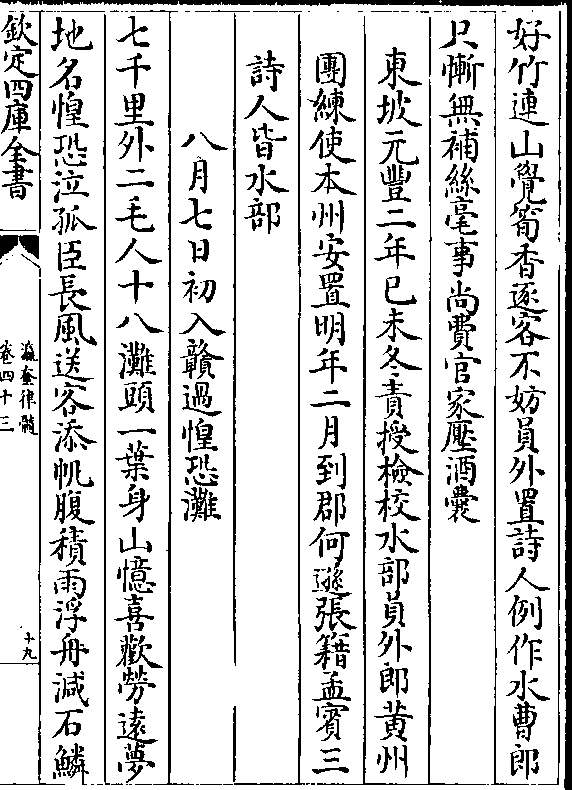 好竹連山覺筍香逐客不妨員外置詩人例作水曹郎
只慚無補絲毫事尚費官家壓酒囊
東坡元豐二年己未冬責授檢校水部員外郎黄州
團練使本州安置明年二月到郡何遜張籍孟賓三
詩人皆水部
八月七日初入贛過惶恐灘
七千里外二毛人十八灘頭一葉身山憶喜歡勞逺夢
地名惶恐泣孤臣長風送客添帆腹積雨浮舟減石鱗
欽定四庫全書
瀛奎律髓
卷四十三
十九